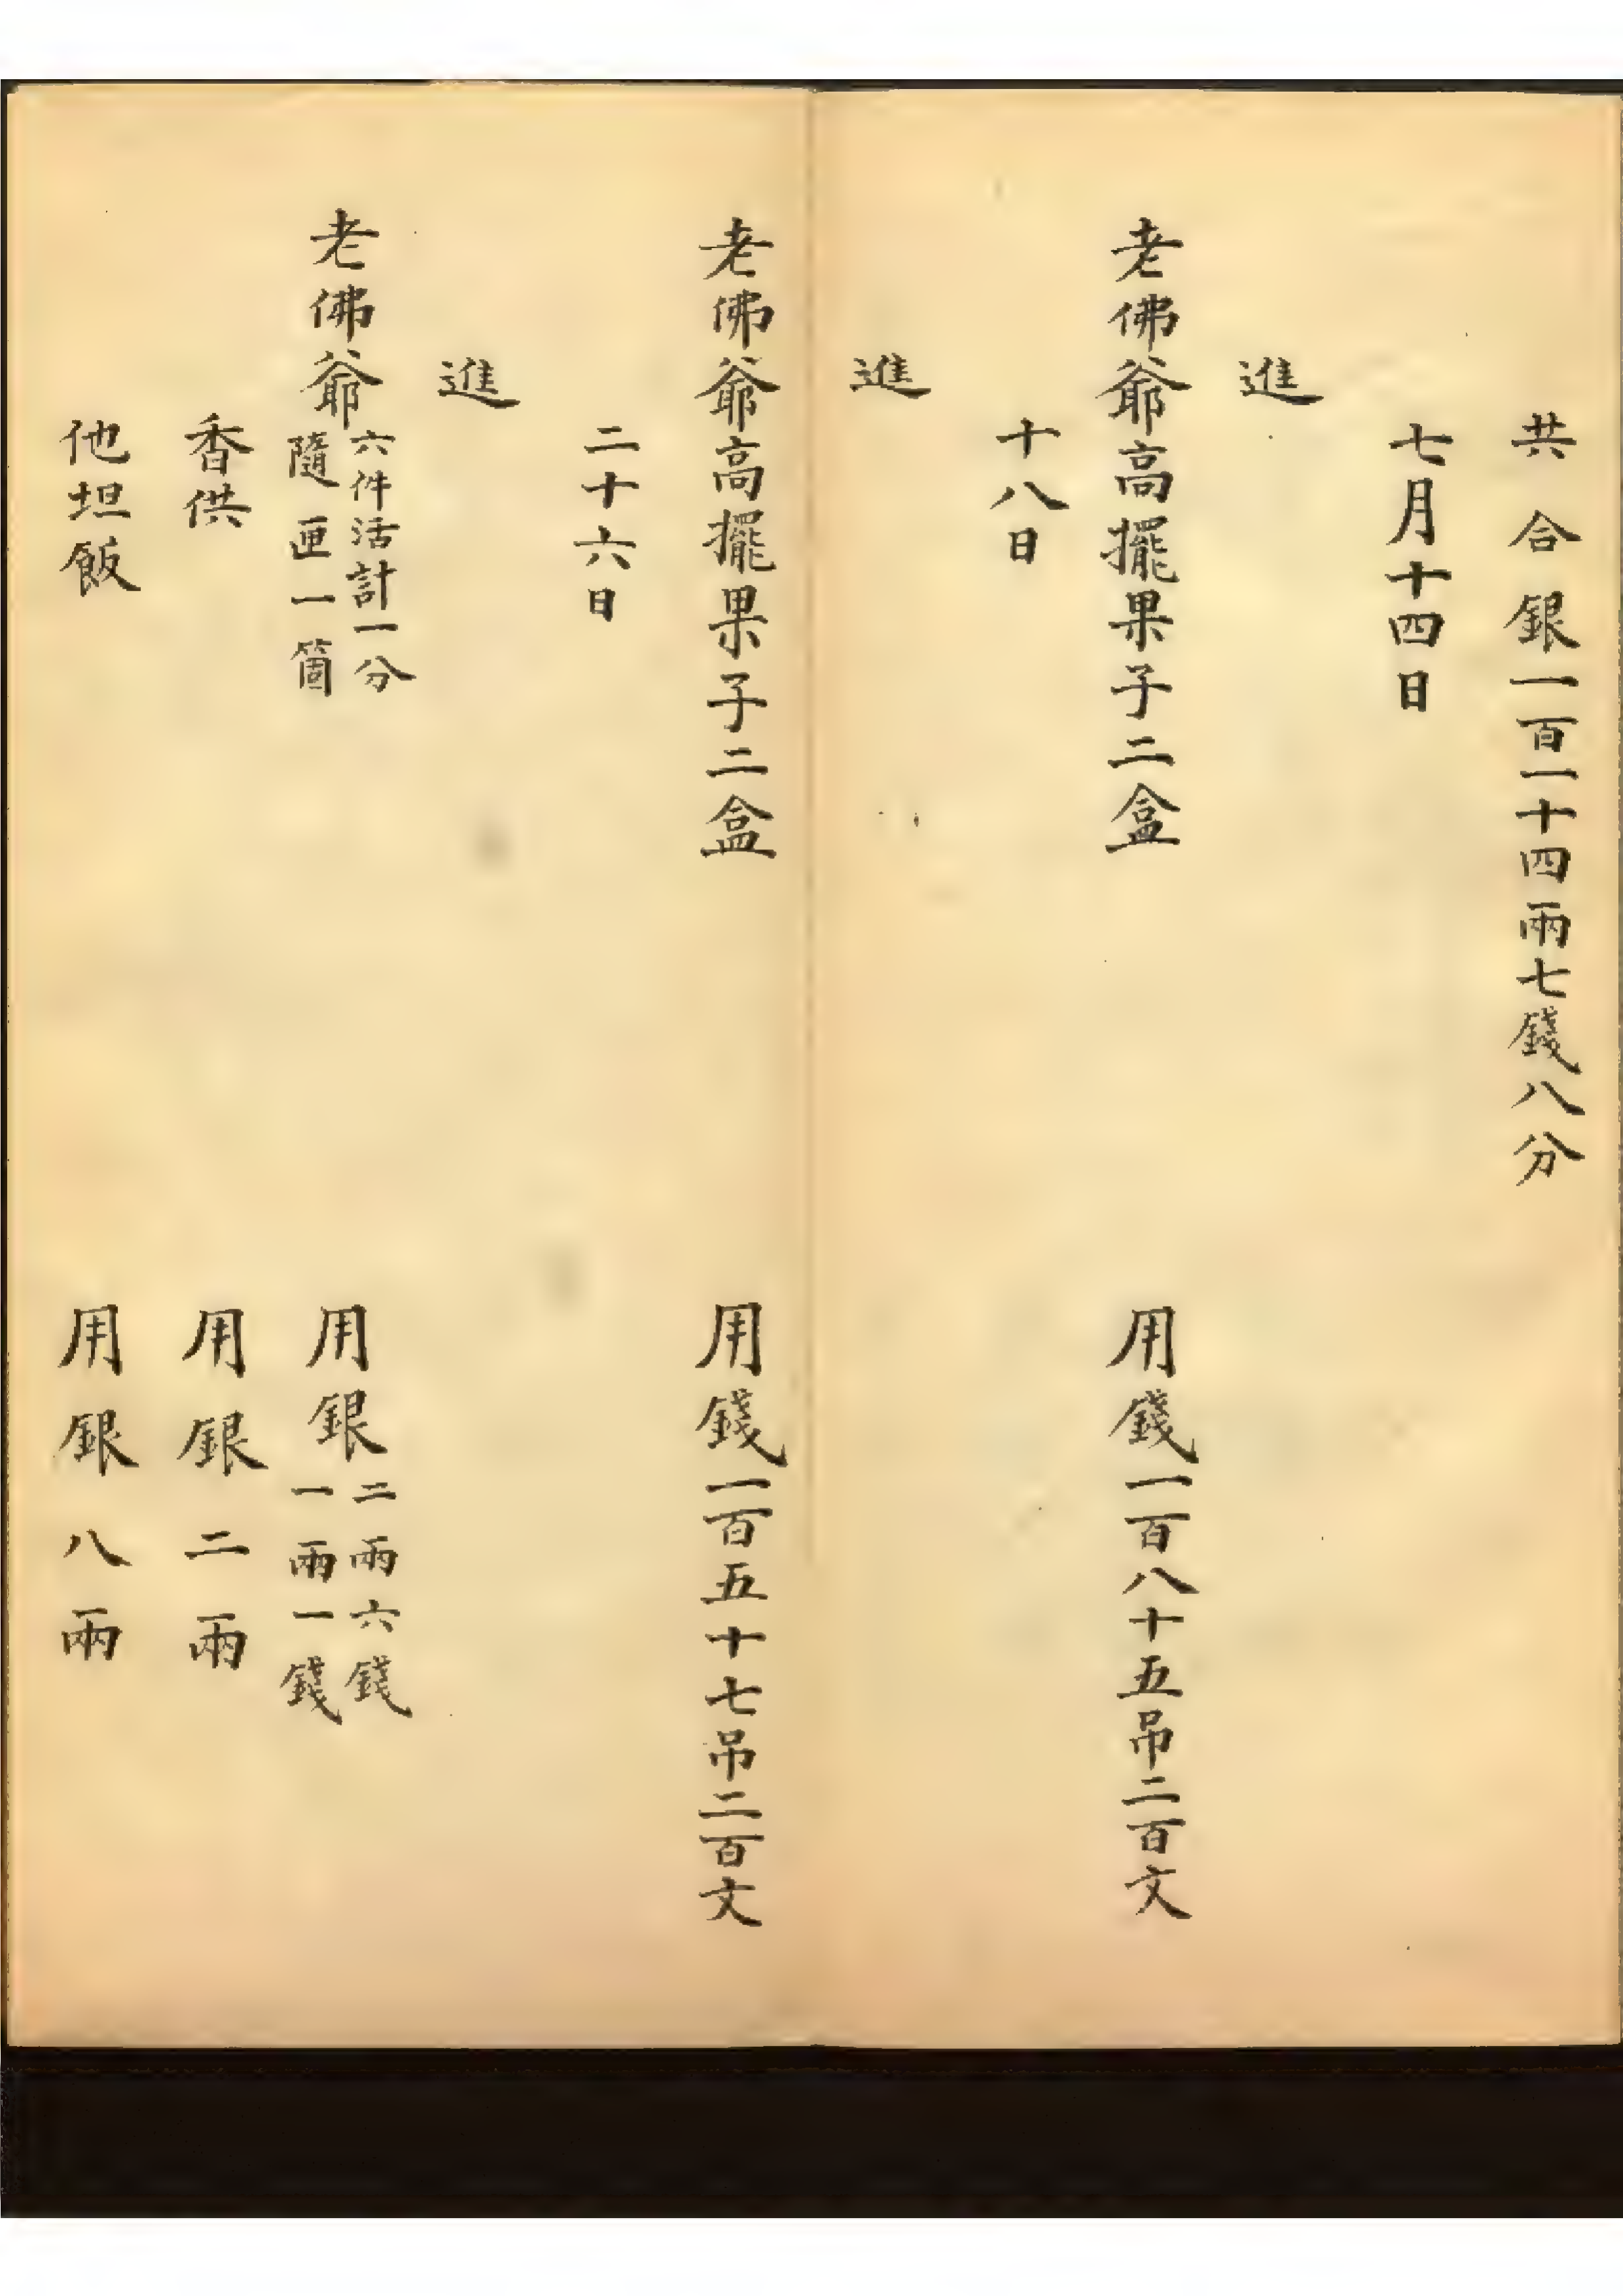 共合銀一百一十四兩七錢八分
七月十四日
進
老佛爺高擺果子二盒 用錢一百八十五吊二百文
十八日
進
老佛爺高擺果子二盒 用錢一百五十七吊二百文
二十六日
進
老佛爺 六件活計一分 隨匣一箇 用銀 二兩六錢 一兩一錢
香供 用銀二兩
他坦飯 用銀八兩